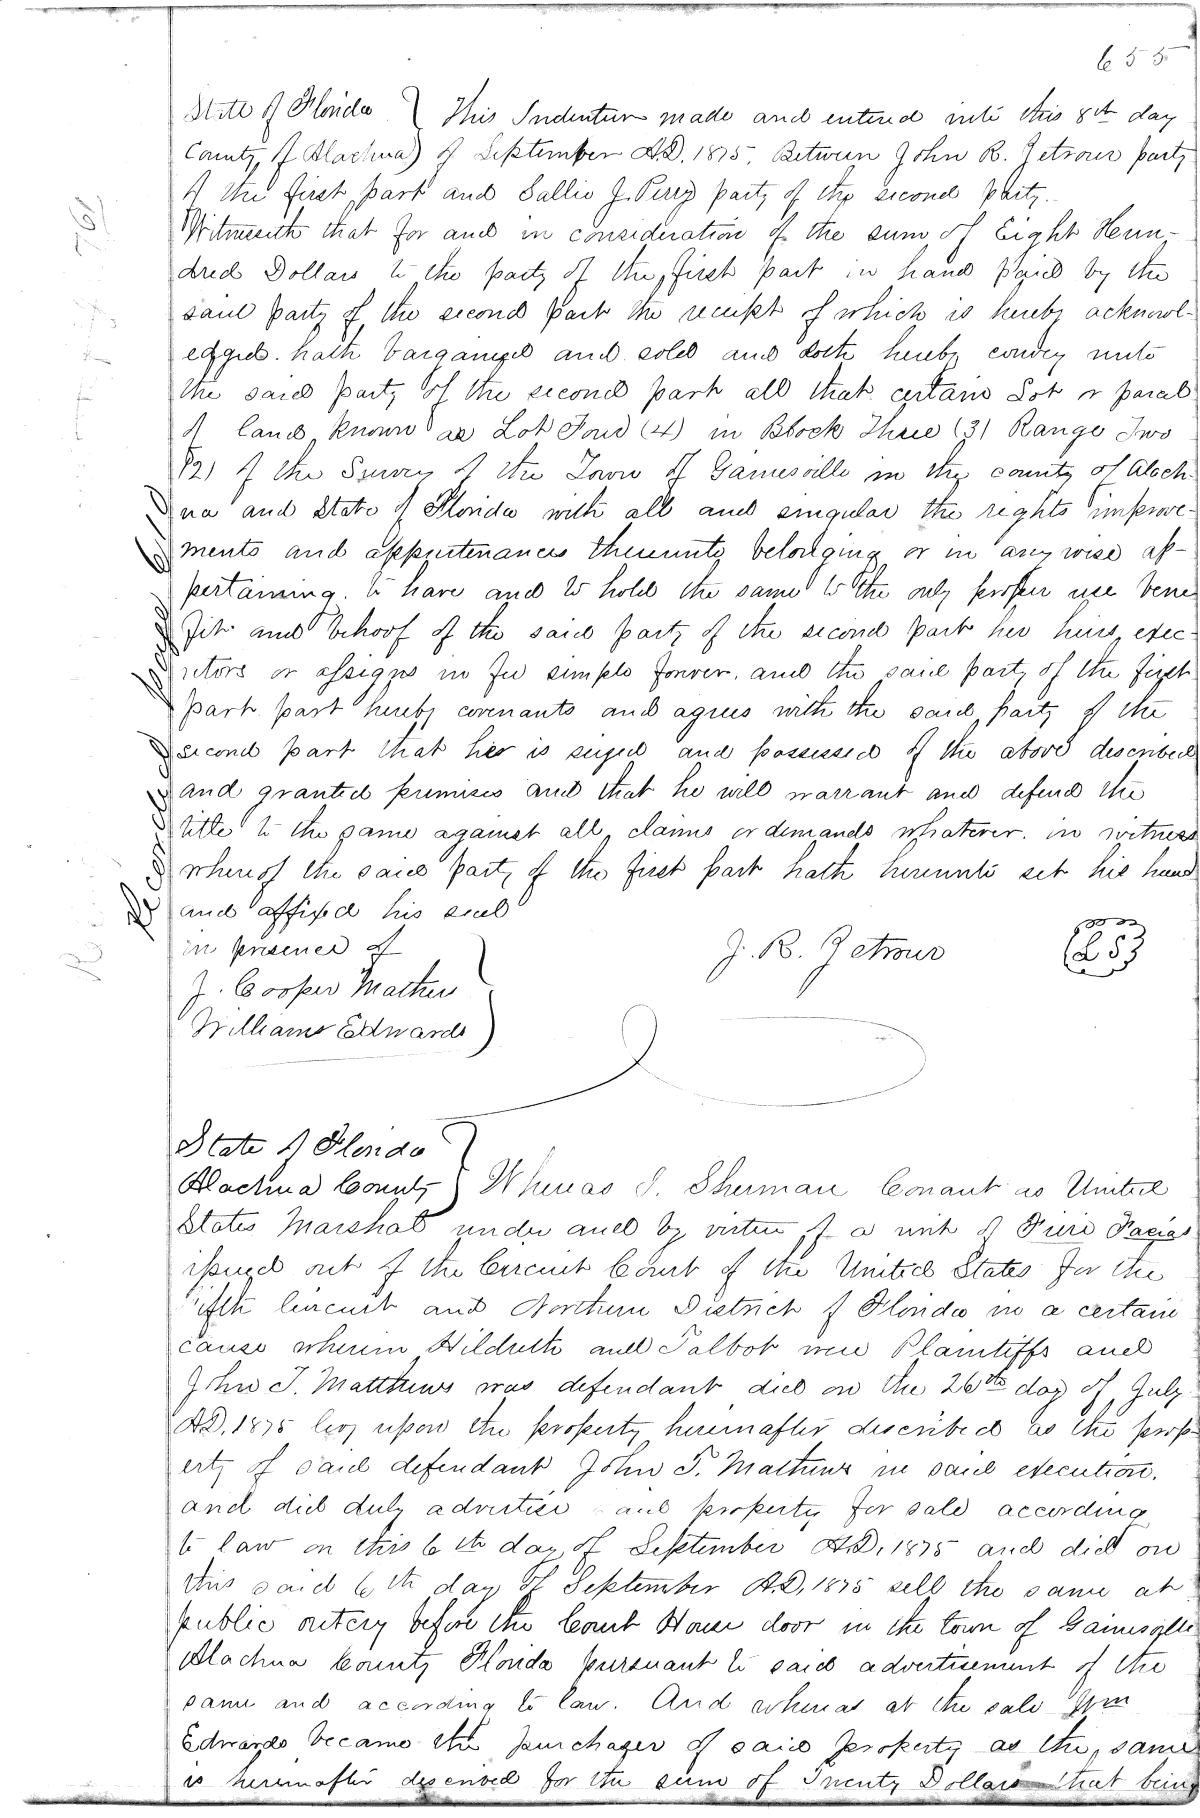 655
State of Florida } This Indenture made and entered into this 8th day
County of Alachua) of September A.D. 1875, Between John R. Zetrouer party
of the first part and Sallie J. Perry party of the second party.
Witnesseth that for and in consideration of the sum of Eight Hun-
dred Dollars to the party of the first part in hand paid by the
said party of the second part the receipt of which is hereby acknowl-
edged. hath bargained and sold and doth hereby convey unto
the said party of the second part all that certain Lot or parcel
of land known as Lot Four (4) in Block Three (3) Range Two
(2) of the Survey of the Town of Gainesville in the county of Alach-
ua and State of Florida with all and singular the rights improve-
ments and appurtenances thereunto belonging or in any wise ap-
pertaining. to have and to hold the same to the only proper use bene
fit and behoof of the said party of the second part her heirs exec-
utors or assigns in fee simple forever. and the said party of the first
part part hereby covenants and agrees with the said party of the
second part that he is seized and possessed of the above described
and granted premises and that he will warrant and defend the
title to the same against all claims or demands whatever. in witness
whereof the said party of the first part hath hereunto set his hand
and affixed his seal
in presence of
J. R. Zetrouer (LS)
J. Cooper Mathers
William Edwards
Recorded page 610
State of Florida
Alachua County } Whereas S. Sherman Conant as United
States Marshal under and by virtue of a writ of Fieri Facias
issued out of the Circuit Court of the United States for the
ifth Circuit and Northern District of Florida in a certain
cause wherein Hildreth and Talbot were Plaintiffs and
John T. Matthews was defendant did on the 26th day of July
A.D. 1875 levy upon the property hereinafter described as the prop-
erty of said defendant John T. Mathews in said execution.
and did duly advertise said property for sale according
to law on this 6th day of September A.D. 1875 and did on
this said 6th day of September A.D. 1875 sell the same at
public outcry before the Court House door in the town of Gainesville
Alachua County Florida pursuant to said advertisement of the
same and according to law. And whereas at the sale Wm
Edwards became the purchaser of said property as the same
is hereinafter described for the sum of Twenty Dollars that being